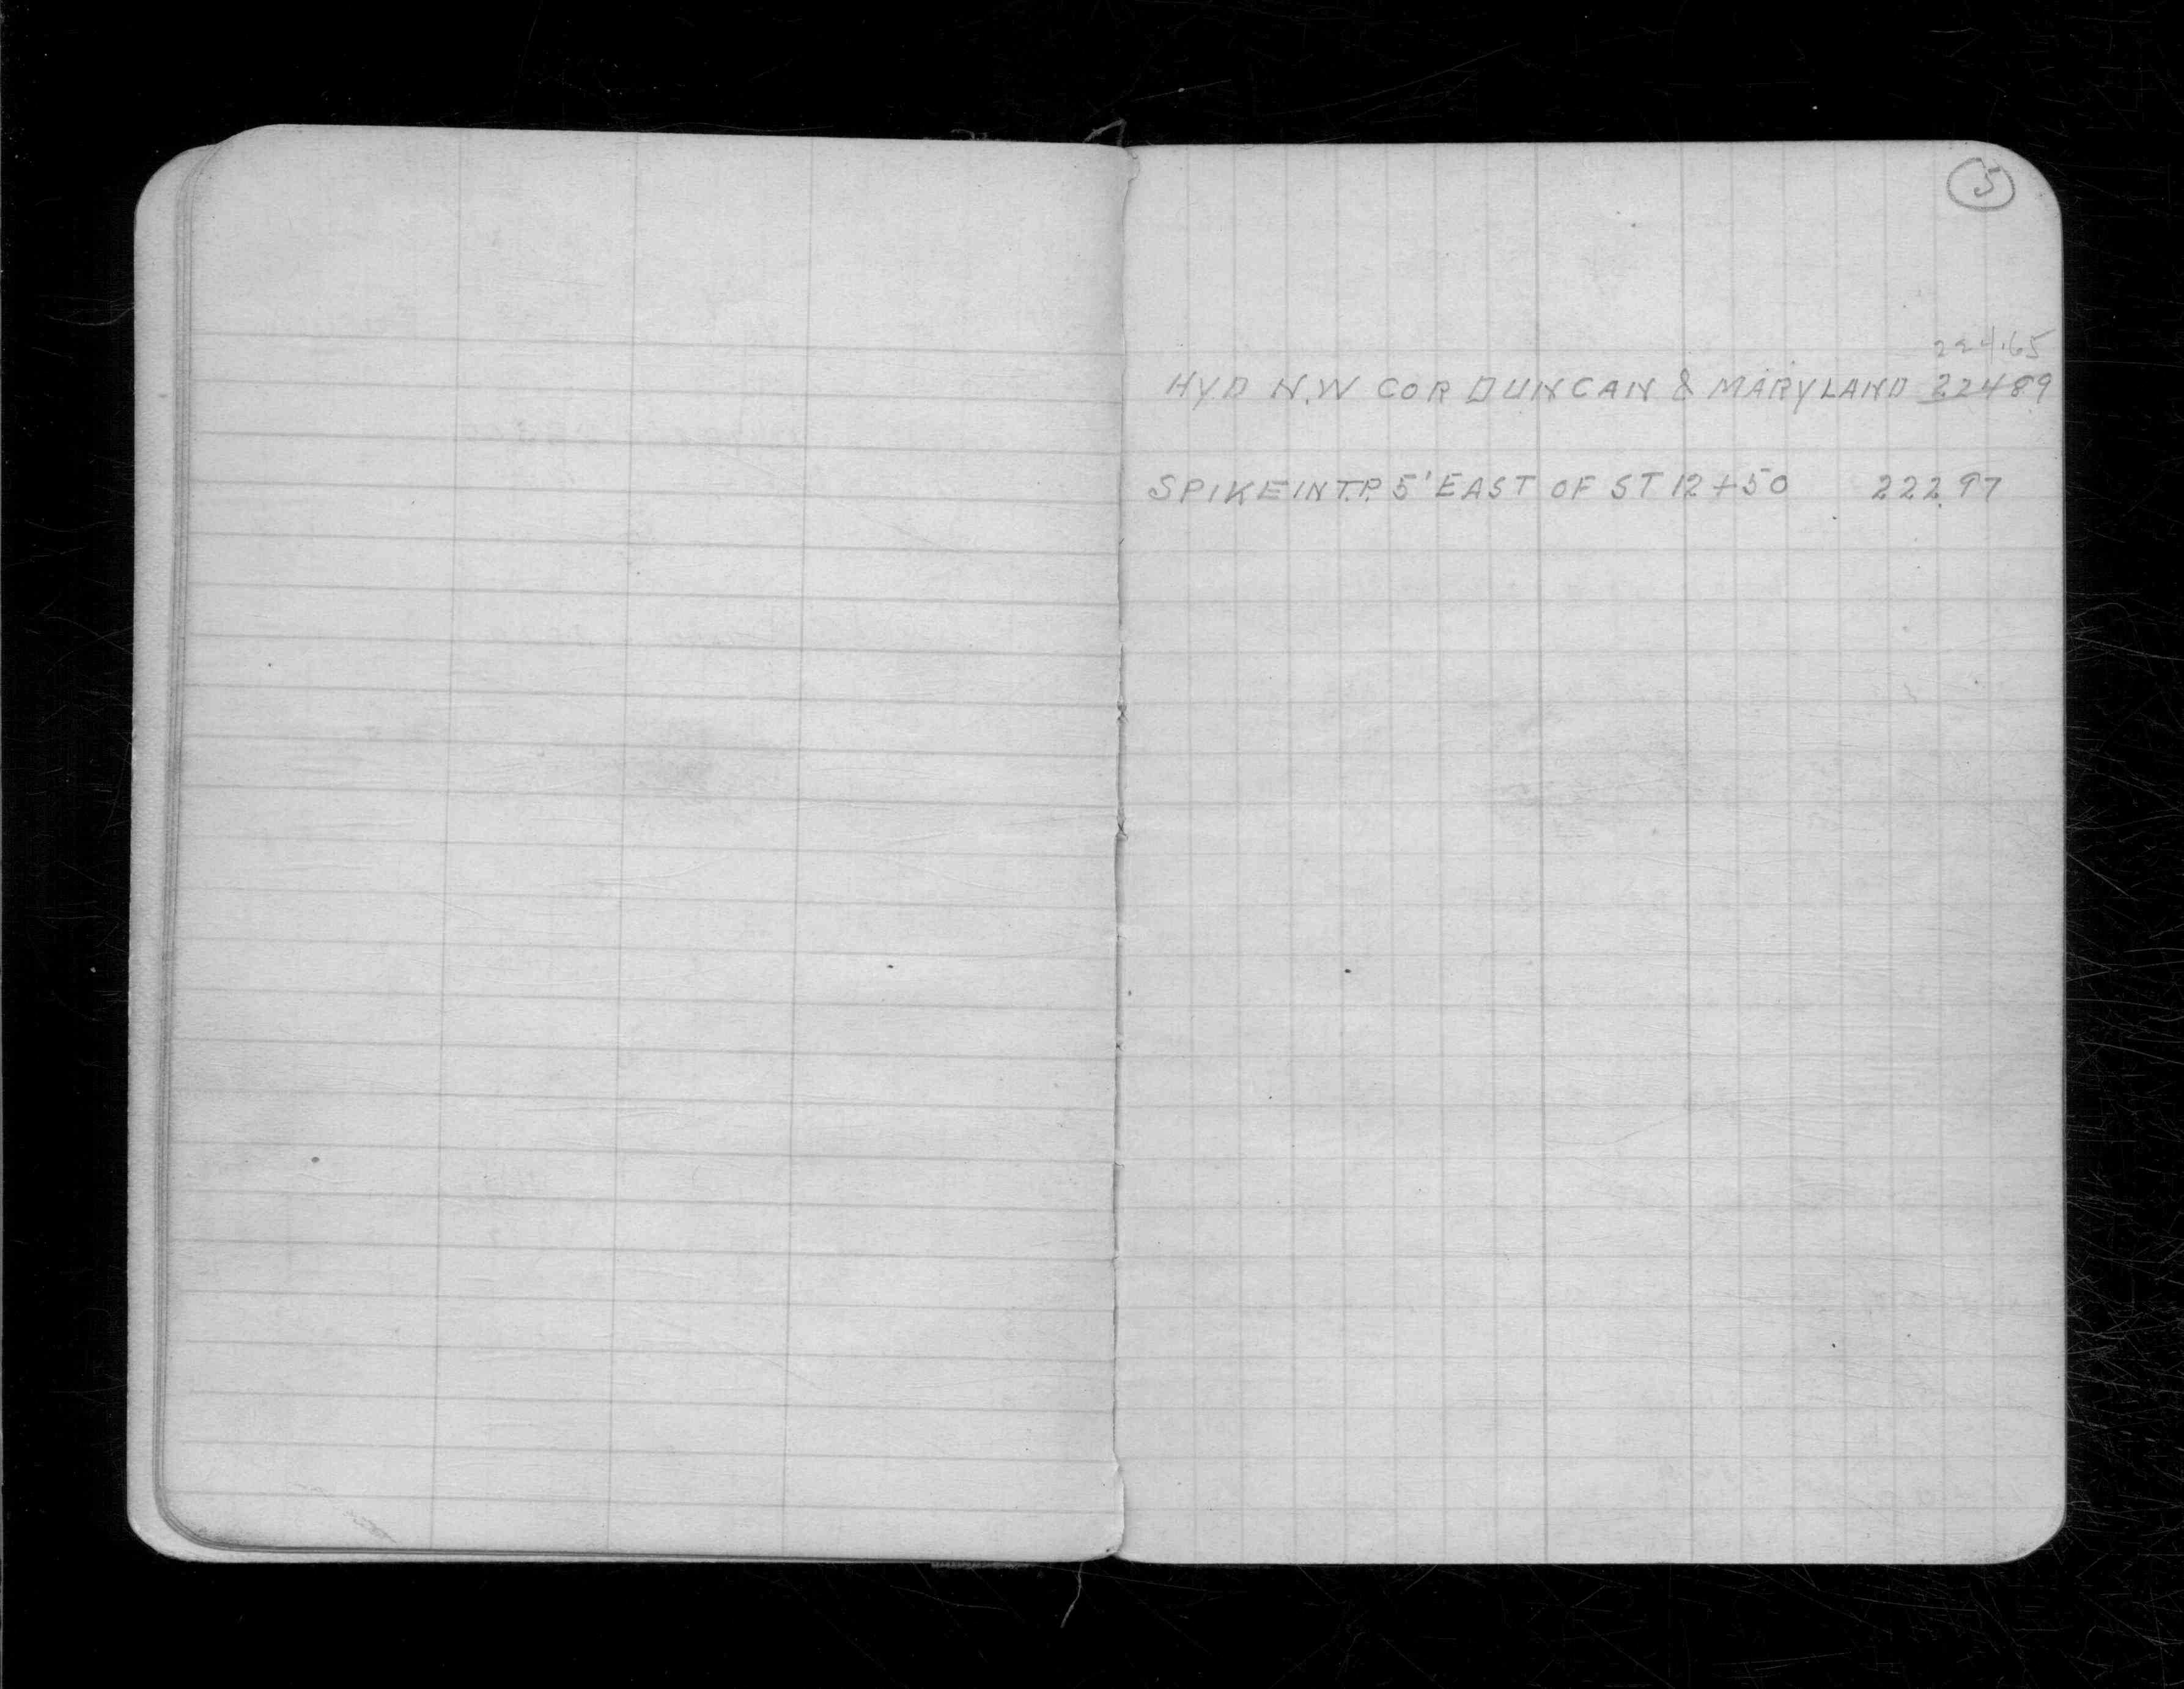 5
224.65
HYD N.W COR DUNCAN & MARYLAND 22489
SPIKE IN T.P. 5' EAST OF ST 12+50 222.97